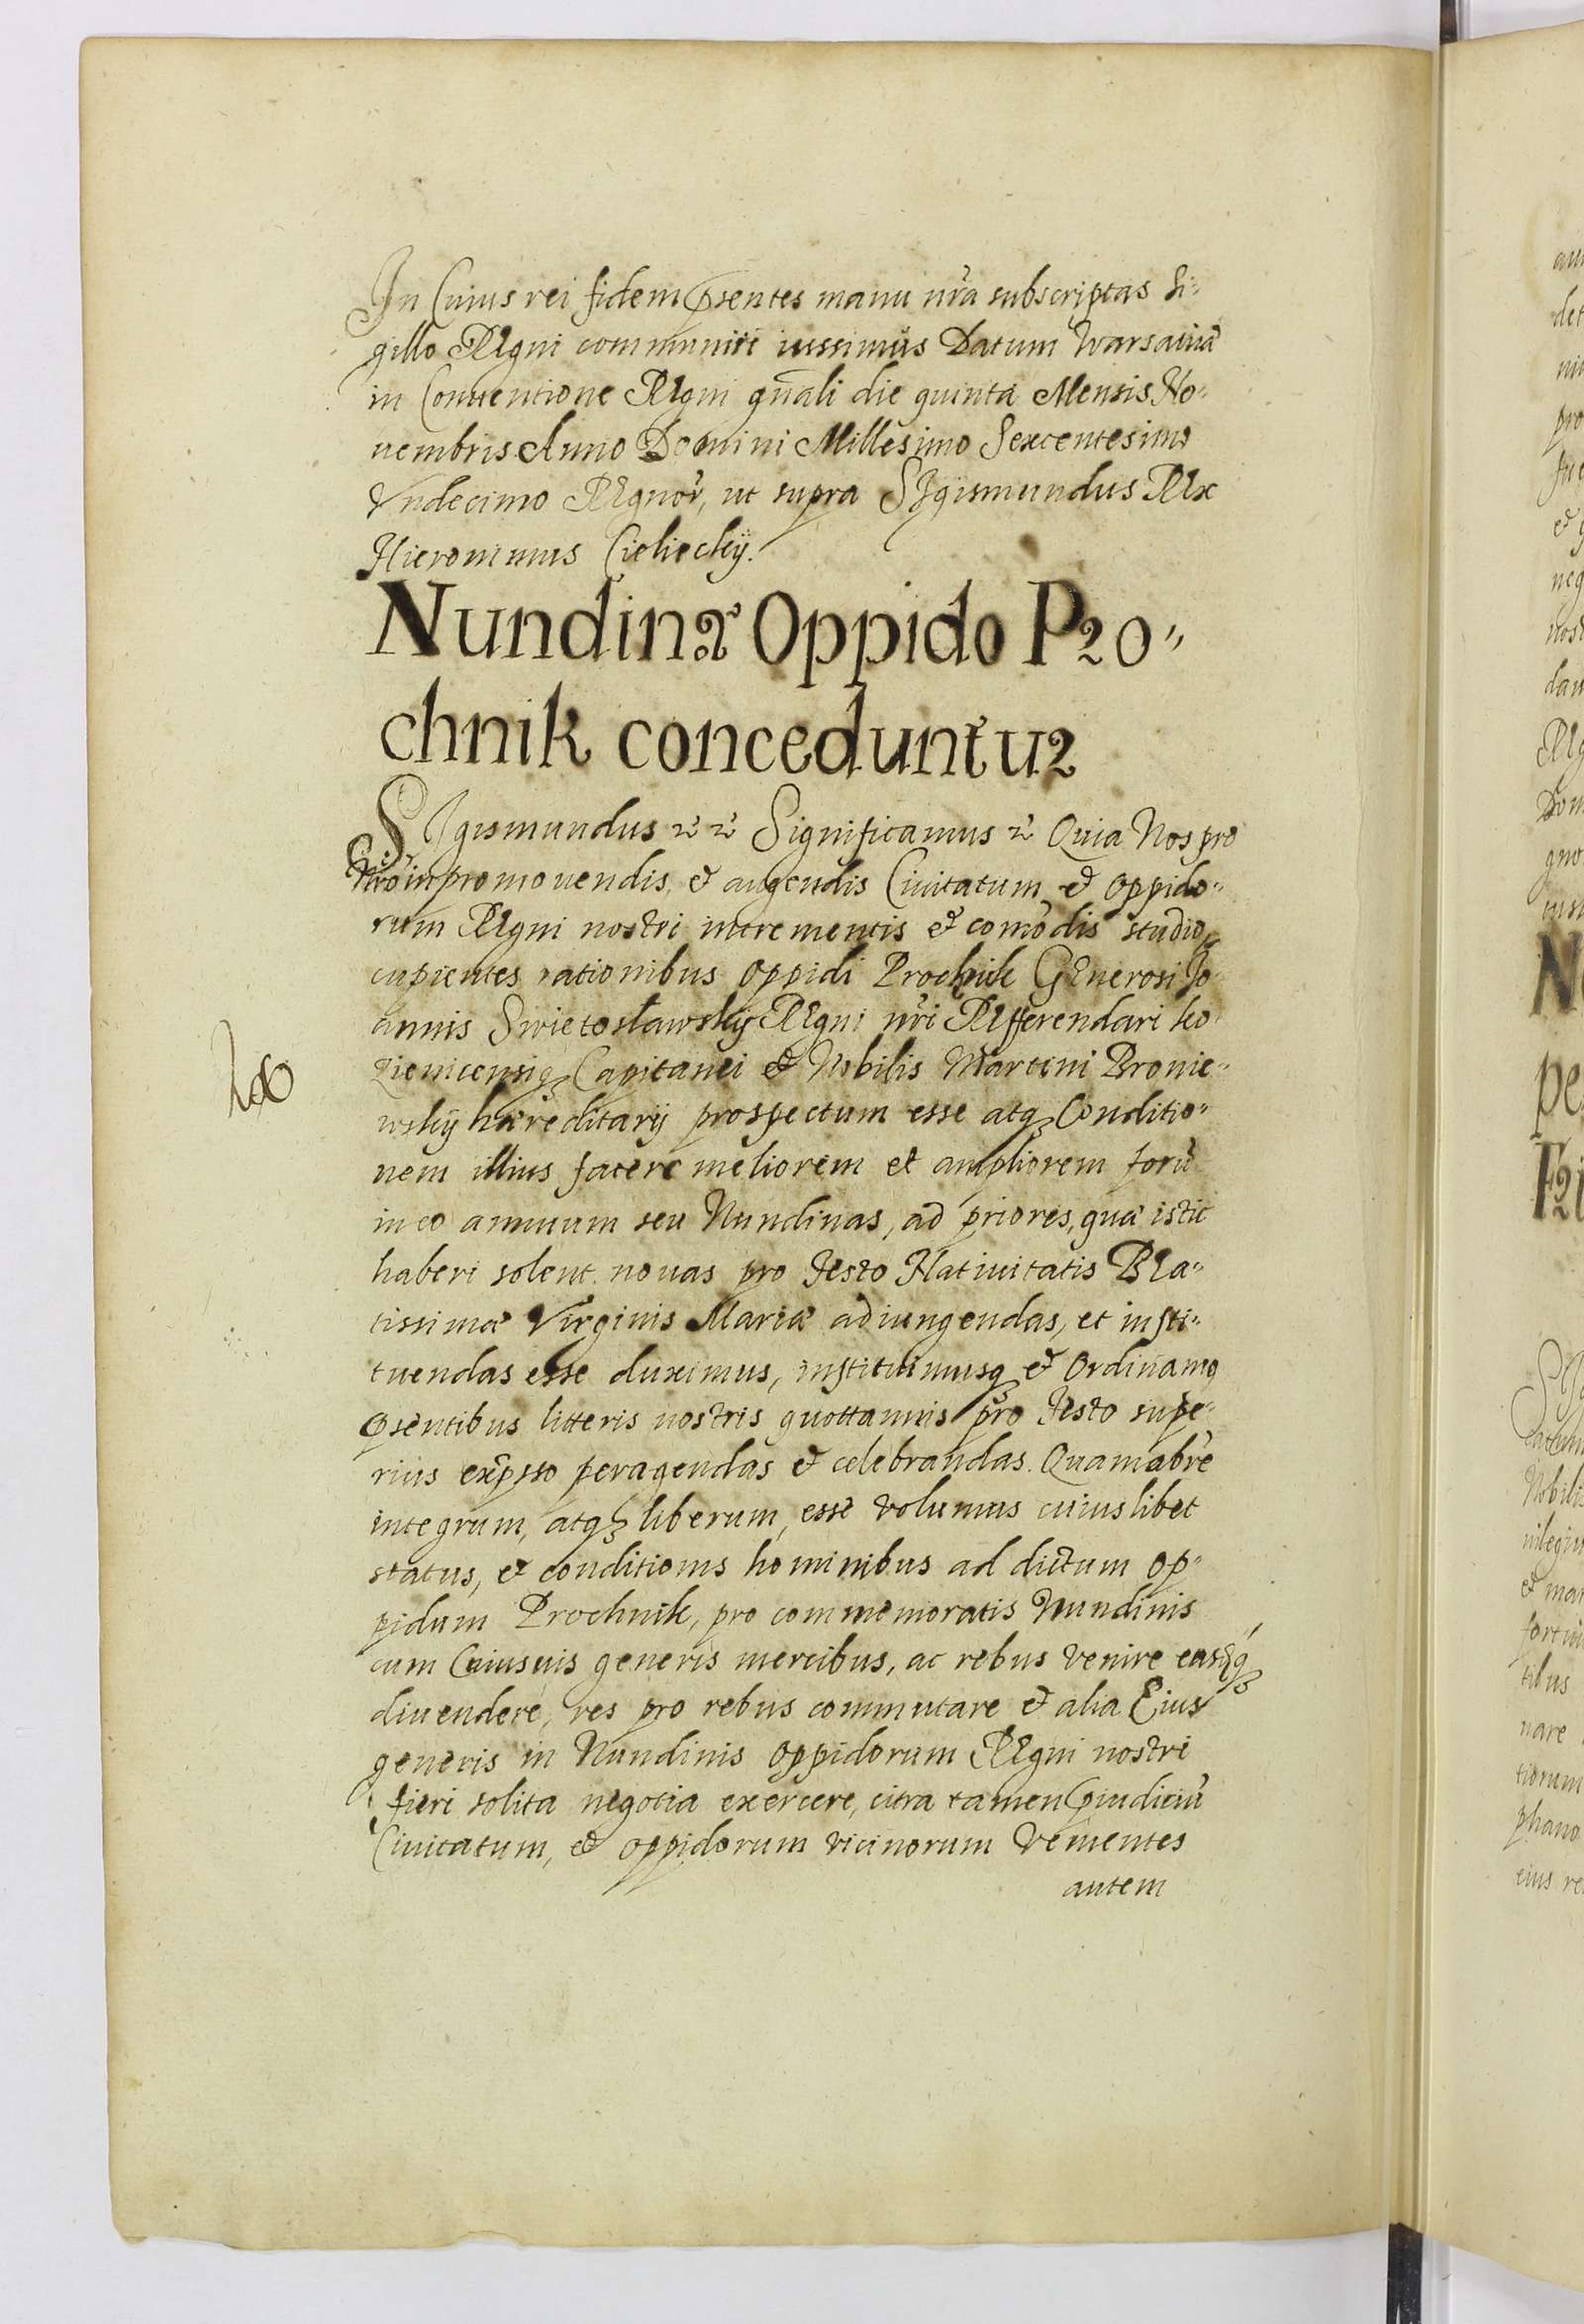 In Cuius rei fidem p̄sentes manu nr̃a subscriptas Si-
gillo REgni communiri iussimus Datum Warsaviæ
in Conuentione REgni gn̄ali die quinta Mensis No-
uembris Anno Domini Millesimo Sexcentesimo
Vndecimo REgnor̃, ut supra SIgismundus REx
Hieronimus Cielieckij.
Nundinæ Oppido Pro-
chnik conceduntur
SIgismundus ꝛc̃ ꝛc̃ Significamus ꝛc̃ Quia Nos pro
nr̃o in promouendis, et augendis Ciuitatum, et oppido-
rum REgni nostri incrementis et com̃odis studio,
cupientes rationibus oppidi Prochnik GEnerosi Jo-
annis Swietosławskij REgni nr̃i REfferendari ko-
zienicensiqꝫ Capitanei et Nobilis Martini Bronie-
wskij hæreditarij prospectum esse atqꝫ Conditio-
nem illius facere meliorem et ampliorem forũ
in eo annuum seu Nundinas, ad priores, quæ istic
haberi solent nouas pro festo Natiuitatis BEa-
tissimæ Virginis Mariæ adiungendas, et insti-
tuendas esse duximus, instituimusqꝫ et Ordinamꝰ
p̄sentibus litteris nostris quottannis pro festo supe-
rius exp̄sso peragendas et celebrandas. Quamobrẽ
integrum, atqꝫ liberum, esse volumus cuiuslibet
status, et conditionis hominibus ad dictum op-
pidum Prochnik, pro commemoratis Nundinis
cum Cuiusuis generis mercibus, ac rebus venire easqꝫ
diuendere, res pro rebus commutare et alia Eius
generis in Nundinis oppidorum REgni nostri
fieri solita negotia exercere, citra tamen p̄iudiciũ
Ciuitatum, et oppidorum vicinorum Venientes
autem